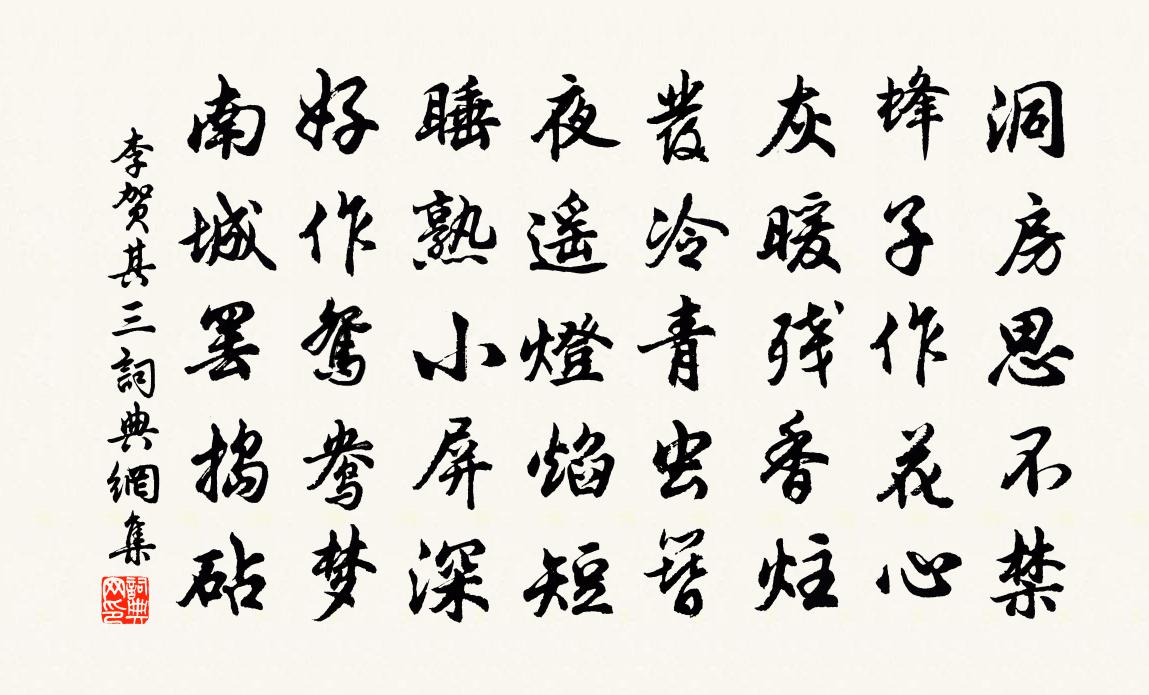 洞房思不禁
蜂子作花心
灰暖残香炷
发冷青虫簪
夜遥燈焰短
睡熟小屏深
好作鸳鸯梦
南城罢捣砧
李贺其三詞典網集
詞典网印